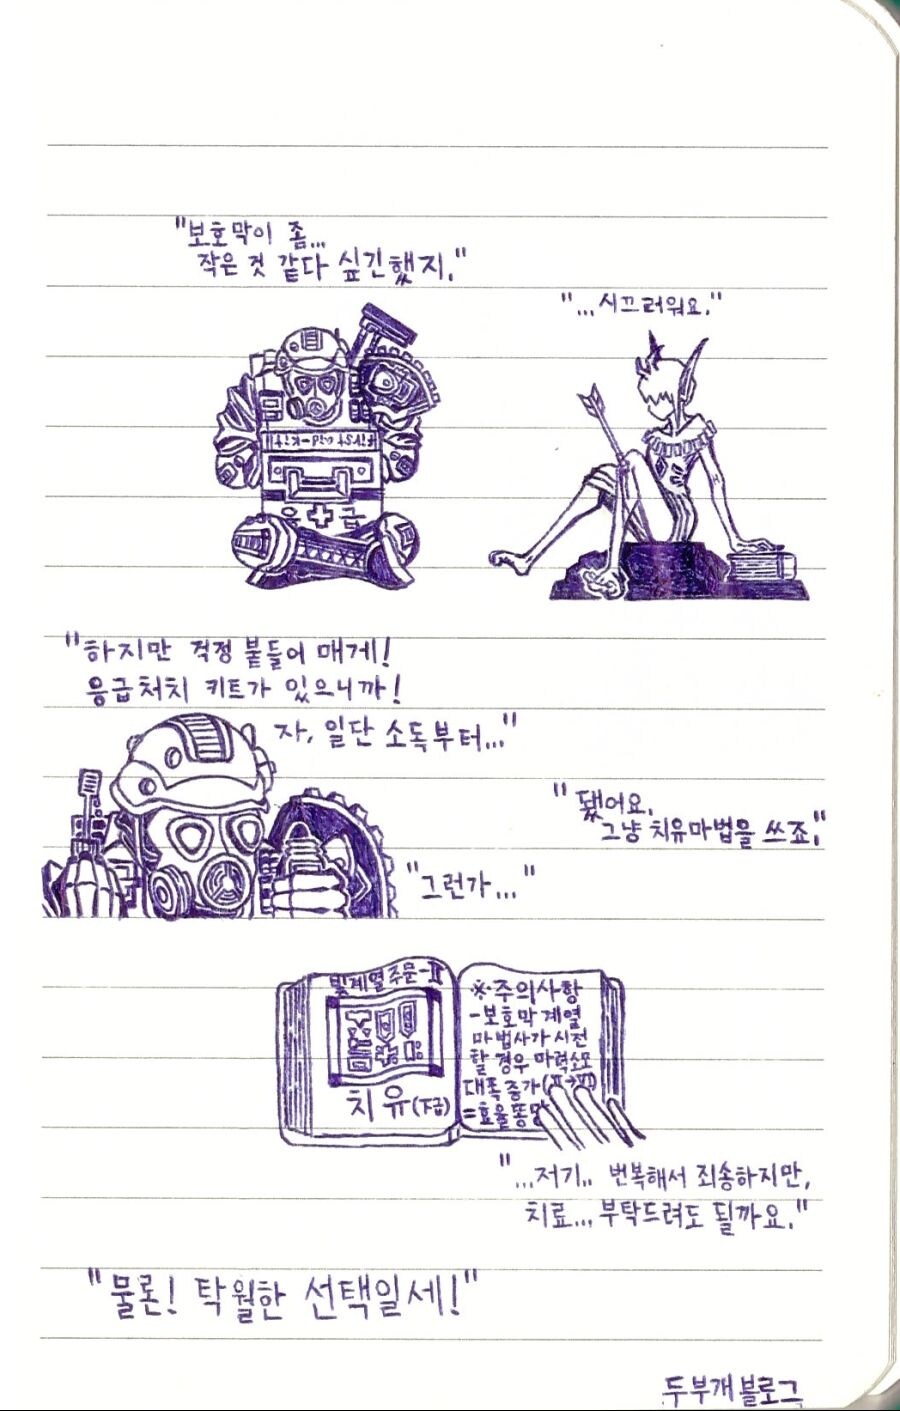 "보호막이 좀...
작은 것 같다 싶긴했지."
"...시끄러워요."
First aid-kit
응+급
"하지만 걱정 붙들어 매게!
응급처치 키트가 있으니까!
자, 일단 소독부터..."
"됐어요.
그냥 치유마법을 쓰죠."
"그런가..."
빛계열주문-II
치유(下급)
※주의사항
-보호막 계열
마법사가 시전
할 경우 마력소모
대폭 증가(II→VI)
=효율똥망
"...저기.. 번복해서 죄송하지만,
치료... 부탁드려도 될까요."
"물론! 탁월한 선택일세!"
두부개블로그